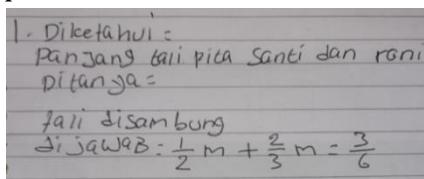 1. Diketahui =
Panjang tali pita Santi dan rani
Ditanya =
tali disambung
dijawaB = 1/2 m + 2/3 m = 3/6